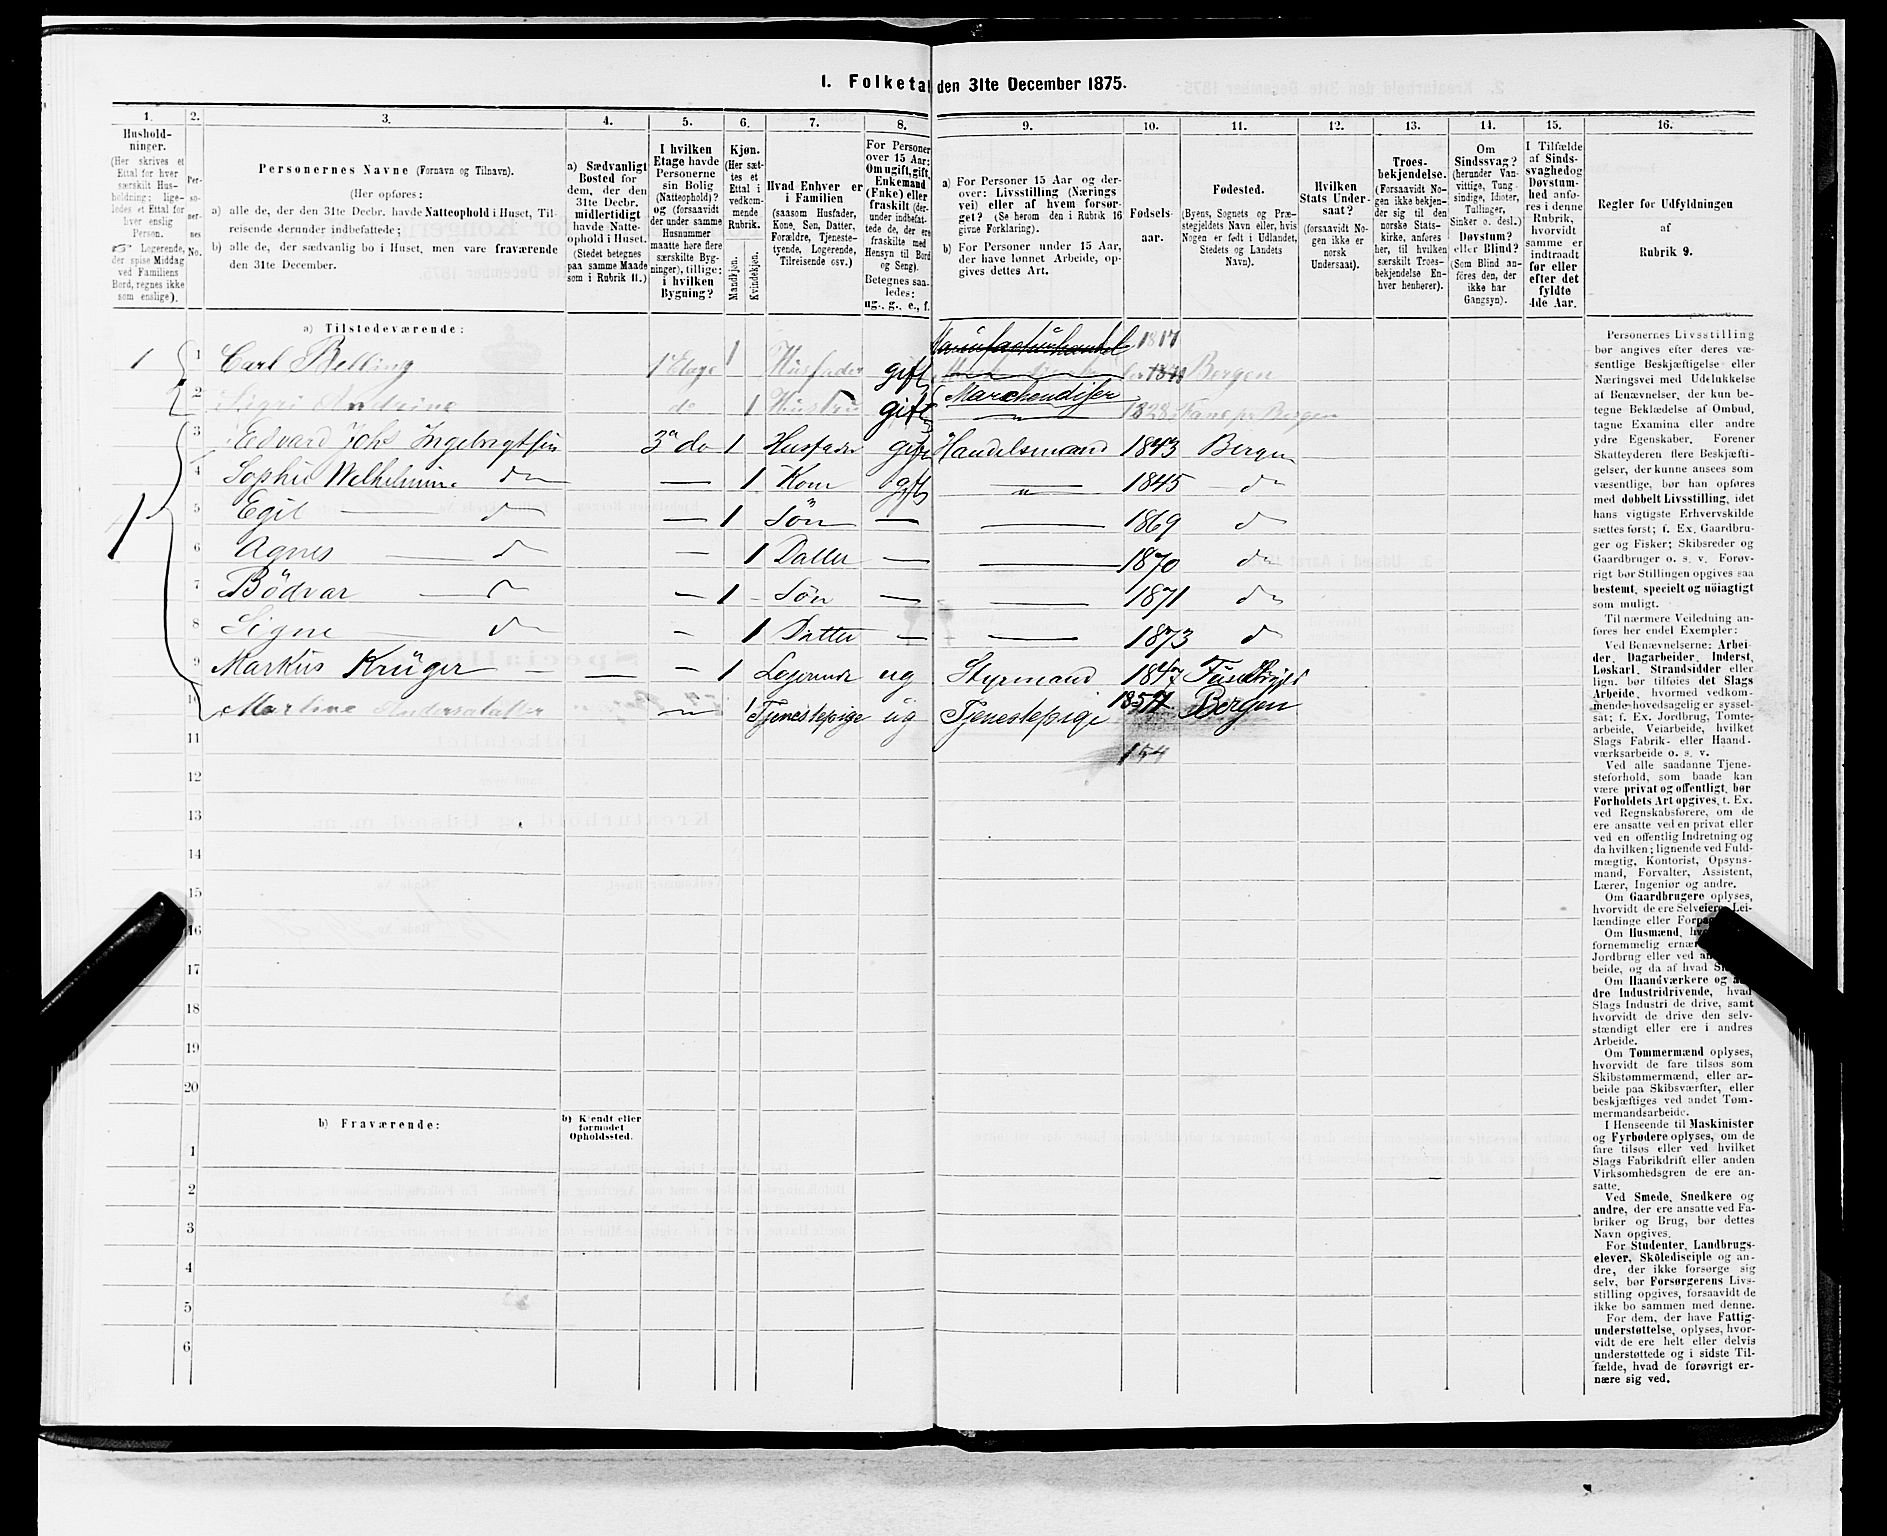 1. Folketal den 31te December 1875.
1.
Hushold-
ninger.
(Her skrives et
Ettal for hver
særskilt Hus-
holdning; lige-
ledes et Ettal for
hver enslig
Person.
Logerende,
der spise Middag
ved Familiens
Bord, regnes ikke
som enslige).
2.
Per-
so-
ner-
nes
No.
3.
Personernes Navne (Fornavn og Tilnavn).
(Her opføres:
a) alle de, der den 31te Decbr. havde Natteophold i Huset, Til-
reisende derunder indbefattede;
b) alle de, der sædvanlig bo i Huset, men vare fraværende
den 31te December.
4.
a) Sædvanligt
Bosted for
dem, der den
31te Decbr.
midlertidigt
havde Natte-
ophold i Huset.
(Stedet betegnes
paa samme Maade
som i Rubrik 11.)
5.
I hvilken
Etage havde
Personerne
sin Bolig
(Natteophold)?
og (forsaavidt
der under samme
Husnummer
maatte høre flere
særskilte Byg-
ninger), tillige:
i hvilken
Bygning?
6.
Kjøn.
(Her sæt-
tes et
Ettal i
vedkom-
mende
Rubrik.
Mandkjøn.
Kvindekjøn.
7.
Hvad Enhver er
i Familien
(saasom Husfader,
Kone, Søn, Datter,
Forældre, Tjeneste-
tyende, Logerende,
Tilreisende osv.)
8.
For Personer
over 15 Aar:
Om ugift, gift,
Enkemand
(Enke) eller
fraskilt (der-
under indbefat-
tede de, der ere
fraskilte med
Hensyn til Bord
og Seng).
Betegnes saa-
ledes:
ug., g., e., f.
9.
a) For Personer 15 Aar og der-
over: Livsstilling (Nærings
vei) eller af hvem forsør-
get? (Se herom den i Rubrik 16
givne Forklaring).
b) For Personer under 15 Aar,
der have lønnet Arbeide, op-
gives dettes Art.
10.
Fødsels-
aar.
11.
Fødested.
(Byens, Sognets og Præ-
stegjeldets Navn eller, hvis
Nogen er født i Udlandet,
Stedets og Landets
Navn).
12.
Hvilken
Stats Under-
saat?
(forsaavidt No-
gen ikke er
norsk
Undersaat).
13.
Troes-
bekjendelse.
(Forsaavidt No-
gen ikke bekjen-
der sig til den
norske Stats-
kirke, anføres
her, til hvilken
særskilt Troes-
bekjendelse En-
hver henhører).
14.
Om
Sindssvag?
(herunder Van-
vittige, Tung-
sindige, Idioter,
Tullinger,
Sinker o. desl.)
Døvstum?
eller Blind?
(Som Blind an-
føres den, der
ikke har
Gangsyn).
15.
I Tilfælde
af Sinds-
svaghed og
Døvstum-
hed anfø-
res i denne
Rubrik,
hvorvidt
samme er
indtraadt
før eller
efter det
fyldte
4de Aar.
16.
Regler for Udfyldningen
af
Rubrik 9.
a) Tilstedeværende:
1 1 Carl Belling 1 Etage 1 Husfader gift Manufacturhandel 1817 Bergen
2 Sigri Andrine do 1 Hustru gift Marchendiser 1828 Fane pr Bergen
1 3 Edvard Johs Ingebrigtsen 3a do 1 Husfader gift Handelsmand 1843 Bergen
4 Sophie Wilhelmine do — 1 Kone gift " 1845 do
5 Egil — do — 1 Søn — — 1869 do
6 Agnes — do — 1 Datter — — 1870 do
7 Bödvar — do — 1 Søn — — 1871 do
8 Signe — do — 1 Datter — — 1873 do
9 Markus Krüger — — 1 Logerende ug Styrmand 1847
10 Martine Andersdatter — 1 Tjenestepige ug Tjenestepige 1854 Bergen
11 154
12
13
14
15
16
17
18
19
20
b) Fraværende:
b) Kjendt eller
formodet
Opholdssted.
1
2
3
4
5
6
Personernes Livsstilling
bør angives efter deres væ-
sentlige Beskjæftigelse eller
Næringsvei med Udelukkelse
af Benævnelser, der kun be-
tegne Beklædelse af Ombud,
tagne Examina eller andre
ydre Egenskaber. Forener
Skatteyderen flere Beskjæfti-
gelser, der kunne ansees som
væsentlige, bør han opføres
med dobbelt Livsstilling, idet
hans vigtigste Erhvervskilde
sættes først; f. Ex. Gaardbru-
ger og Fisker; Skibsreder og
Gaardbruger o. s. v. Forøv-
rigt bør Stillingen opgives saa
bestemt, specielt og nöiagtigt
som muligt.
Til nærmere Veiledning an-
føres her endel Exempler:
Ved Benævnelserne: Arbei-
der, Dagarbeider, Inderst,
Løskarl, Strandsidder eller
lign. bør tilføies det Slags
Arbeide, hvormed vedkom-
mende hovedsagelig er syssel-
sat; f. Ex. Jordbrug, Tomte-
arbeide, Veiarbeide, hvilket
Slags Fabrik- eller Haand-
værksarbeide o. s. v.
Ved alle saadanne Tjene-
steforhold, som baade kan
være privat og offentligt, bør
Forholdets Art opgives, t. Ex.
ved Regnskabsførere, om de
ere ansatte ved en privat eller
ved en offentlig Indretning og
da hvilken; lignende ved Fuld-
mægtig, Kontorist, Opsyns-
mand, Forvalter, Assistent,
Lærer, Ingeniør og andre.
Om Gaardbrugere oplyses,
hvorvidt de ere Selveiere, Lei-
lændinge eller
Om Husmænd,
fornemmelig
Jordbrug eller ved
beide, og da af hvad
Om Haandværkere og an-
dre Industridrivende, hvad
Slags Industri de drive, samt
hvorvidt de drive den selv-
stændigt eller ere i andres
Arbeide.
Om Tømmermænd oplyses,
hvorvidt de fare tilsøs som
Skibstømmermænd, eller ar-
beide paa Skibsværfter, eller
beskjæftiges ved andet Tøm-
mermandsarbeide.
I Henseende til Maskinister
og Fyrbødere oplyses, om de
fare tilsøs eller ved hvilket
Slags Fabrikdrift eller anden
Virksomhedsgren de ere an-
satte.
Ved Smede, Snedkere og
andre, der ere ansatte ved Fa-
briker og Brug, bør dettes
Navn opgives.
For Studenter, Landbrugs-
elever, Skóledisciple og an-
dre, der ikke forsørge sig
selv, bør Forsørgerens Livs-
stilling opgives, forsaavidt de
ikke bo sammen med denne.
For dem, der have Fattig-
understøttelse, oplyses, hvor-
vidt de ere helt eller delvis
understøttede og i sidste Til-
fælde, hvad de forøvrigt er-
nære sig ved.